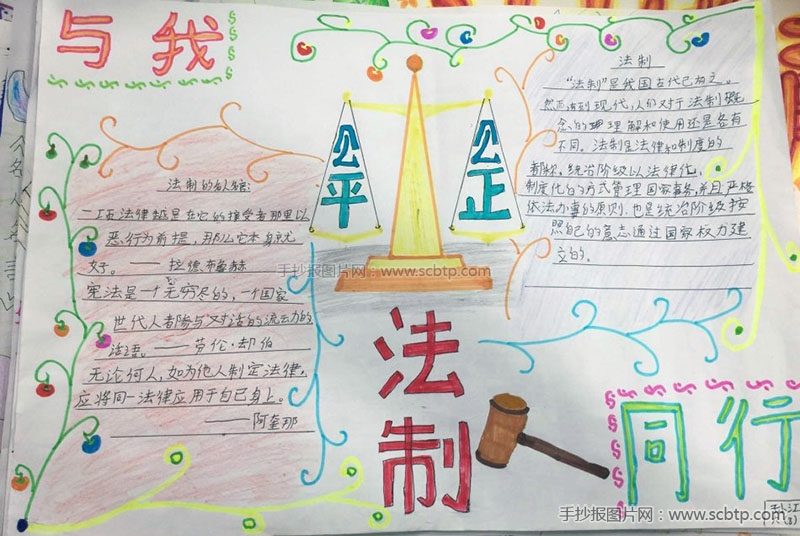 与我
公平
公正
法制
同行
法制的名人名言:
一切法律越是在它的
恶行为前提,那么它本身就
好。——拉德布鲁赫
宪法是一个无穷尽的,一个国家
世代人都参与对话的流动的
话语。——劳伦·却伯
无论何人,如为他人制定法律,
应将同一法律应用于自己身上。
——阿奎那
法制
“法制”是我国古代已有之。
然而直到现代,人们对于法制概
念的理解和使用还是各有
不同。法制是法律和制度的
都称。统治阶级以法律化,
制度化的方式管理国家事务,并且严格
依法办事的原则,也是统治阶级按
照自己的意志通过国家权力建
立的。
手抄报图片网:www.scbtp.com
手抄报图片网:www.scbtp.com